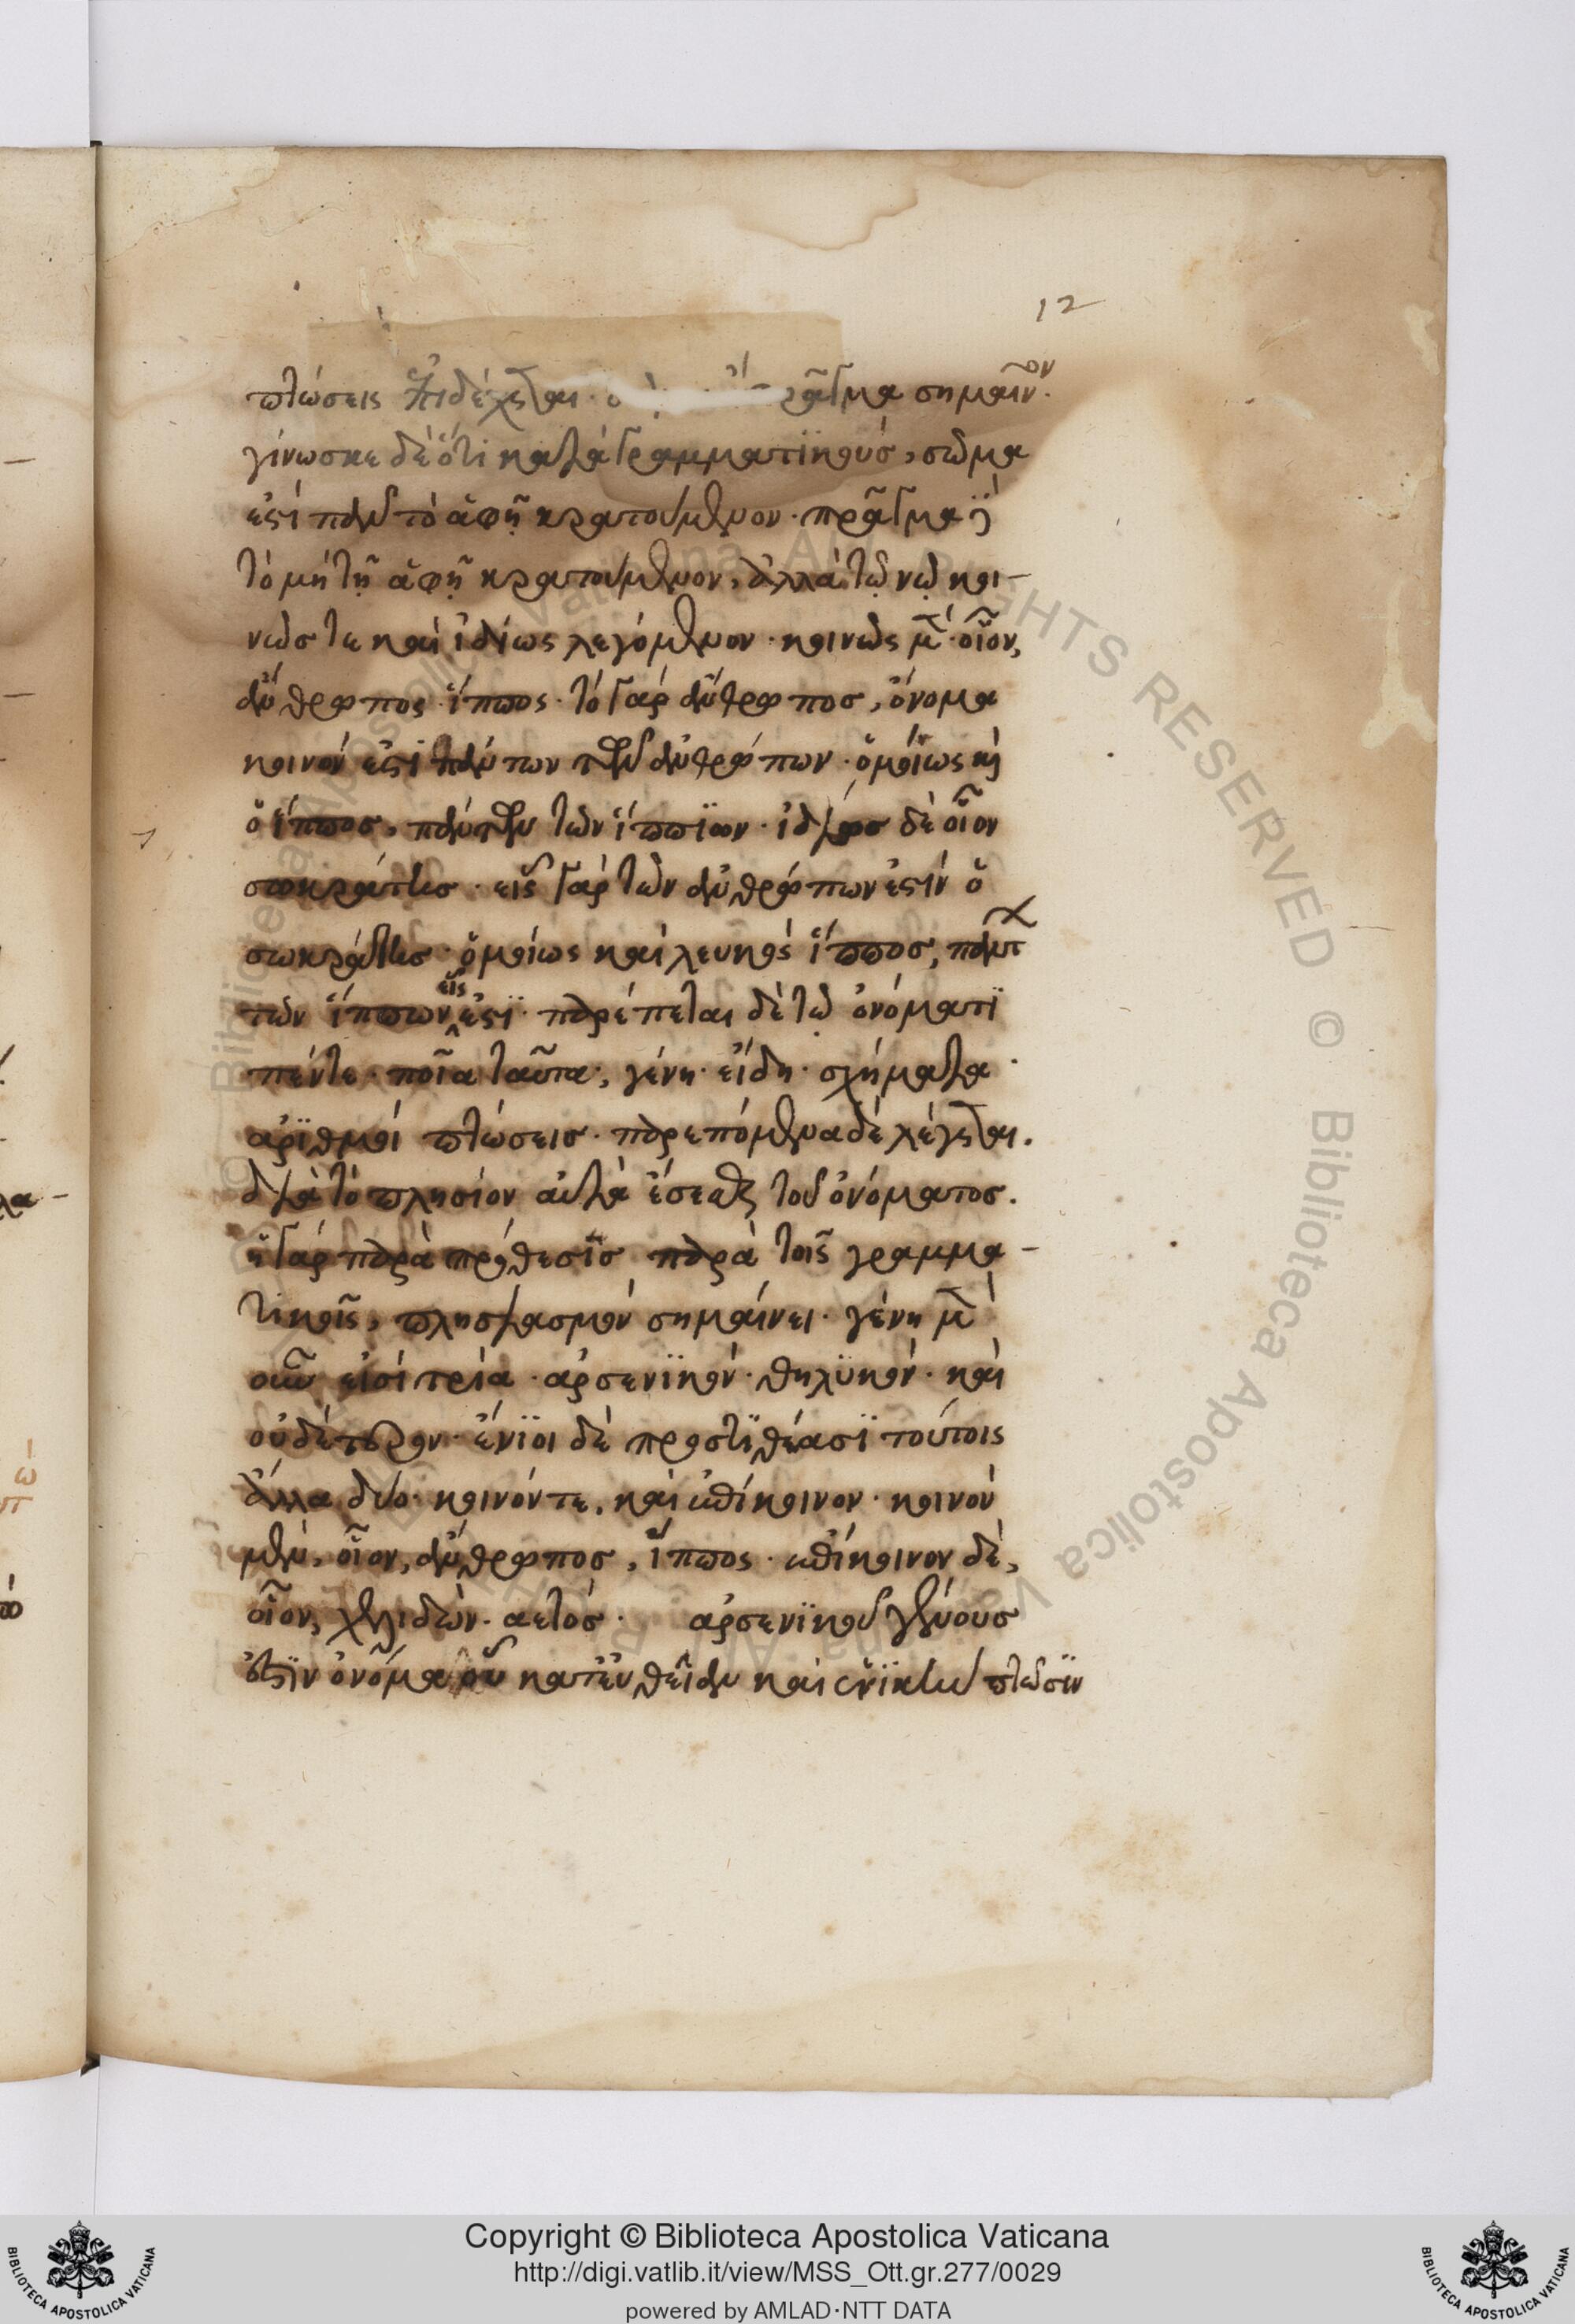 12
πτώσεις ἐπιδέχεται πρᾶγμα σημαῖνον.
γίνωσκε δὲ ὅτι κατὰ γραμματϊκοὺσ, σῶμα
ἐστὶ πᾶν τὸ ἁφῇ κρατούμενον · πρᾶγμα δὲ
τὸ μὴ τῇ ἁφῇ κρατούμενον, ἀλλὰ τῷ νῷ κοι-
νῶσ τε καὶ ἰδίως λεγόμενον · κοινῶς μὲν · οἷον,
ἄνθρωπος ἵππος · τὸ γὰρ ἄνθρωποσ, ὄνομα
κοινόν ἐστι πάντων τῶν ἀνθρώπων · ὁμοίως καὶ
ὁ ἵπποσ, πάντων τῶν ἵππϊων · ἰδίωσ δὲ οἷον
σωκράτησ · εἷς γὰρ τῶν ἀνθρώπων ἐστὶν ὁ
σωκράτησ · ὁμοίως καὶ λευκὸς ἵπποσ, πάντων
τῶν ἵππων εἷς ἐστϊ · παρέπεται δὲ τῶ ὀνόματϊ
πέντε · ποῖα ταῦτα, γένη · εἴδη · σχήματα ·
ἀρϊθμοὶ πτώσεισ · παρεπόμενα δὲ λέγεται.
διὰ τὸ πλησίον αὐτὰ ἔσεσθαι τοῦ ὀνόματοσ.
ἡ γὰρ παρὰ πρόθεσϊσ παρὰ τοῖς γραμμα-
τικοῖς, πλησιασμὸν σημαίνει · γένη μὲν
οὖν εἰσὶ τρία · ἀρσενϊκόν · θηλϋκόν · καὶ
οὐδέτερον · ἔνϊοι δὲ προστϊθέασϊ τούτοις
ἄλλα δύο · κοινόν τε, καὶ ἐπίκοινον · κοινὸν
μὲν, οἷον, ἄνθρωποσ, ἵππος · ἐπίκοινον δὲ,
οἷον, χελιδών · αετόσ · ἀρσενϊκοῦ γένουσ
ἐστϊν ὀνόμα οὗ κατ' εὐθεῖαν καὶ ἑνϊκὴν πτῶσϊν
Copyright © Biblioteca Apostolica Vaticana
http://digi.vatlib.it/view/MSS_Ott.gr.277/0029
powered by AMLAD·NTT DATA